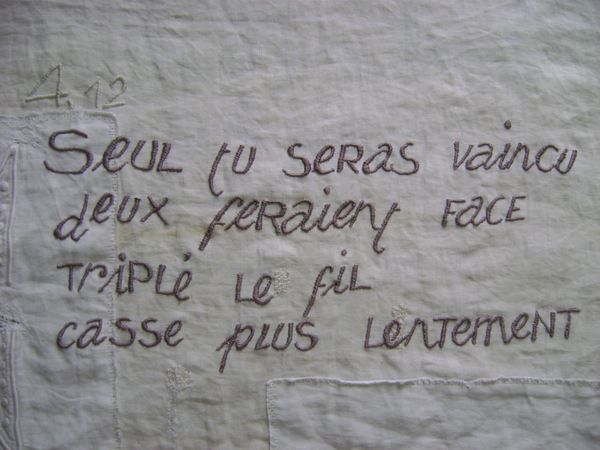 4.12
SEUL tu SERAS vaincu
deux feraient FACE
TRIPLÉ LE fil
casse plus LENTEMENT